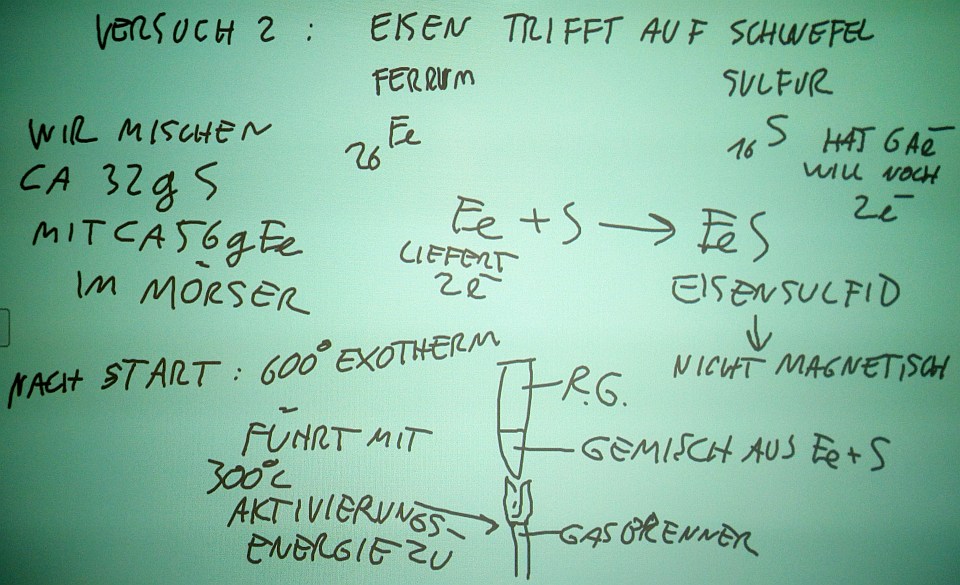 VERSUCH 2 : EISEN TRIFFT AUF SCHWEFEL
FERRUM
SULFUR
26 Fe
16 S
HAT 6 Ae⁻
WILL NOCH
2e⁻
WIR MISCHEN
CA 32g S
MIT CA 56g Fe
IM MÖRSER
Fe + S → FeS
LIEFERT
2e⁻
EISENSULFID
↓
NICHT MAGNETISCH
NACH START : 600° EXOTHERM
R.G.
GEMISCH AUS Fe + S
FÜHRT MIT
300°C
AKTIVIERUNGS-
ENERGIE ZU
GASBRENNER